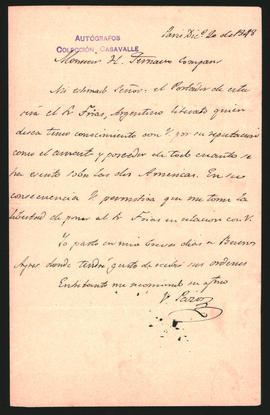 AUTÓGRAFOS
COLECCIÓN CASAVALLE
Paris Dic.e 20 de 1848
Monsieur H. Ternaux Compans
Mi estimado Señor: el Portador de esta
será el Sr Frias, Argentino literato quien
desea tener conocimiento con V. por su reputacion
como el amant y poseedor de todo cuanto se
ha escrito sobre las dos Americas. En su
consecuencia V. permitira que me tome la
libertad de poner al Sr Frias en relacion con V.
Yo parto en muy breves dias a Buenos
Ayres donde tendré gusto de recibir sus ordenes
Entretanto me recomiendo su afmo